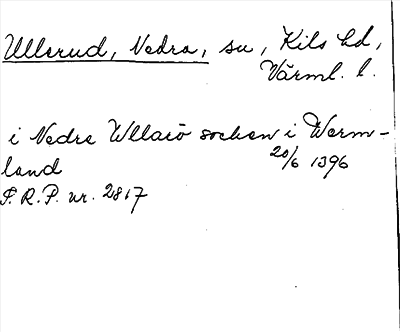 Ullerud, Nedra, sn, Kils hd,
Värml. l.
i Nedre Wllarö sochen i Werm-
land 20/6 1396
S.R.P. nr. 2817